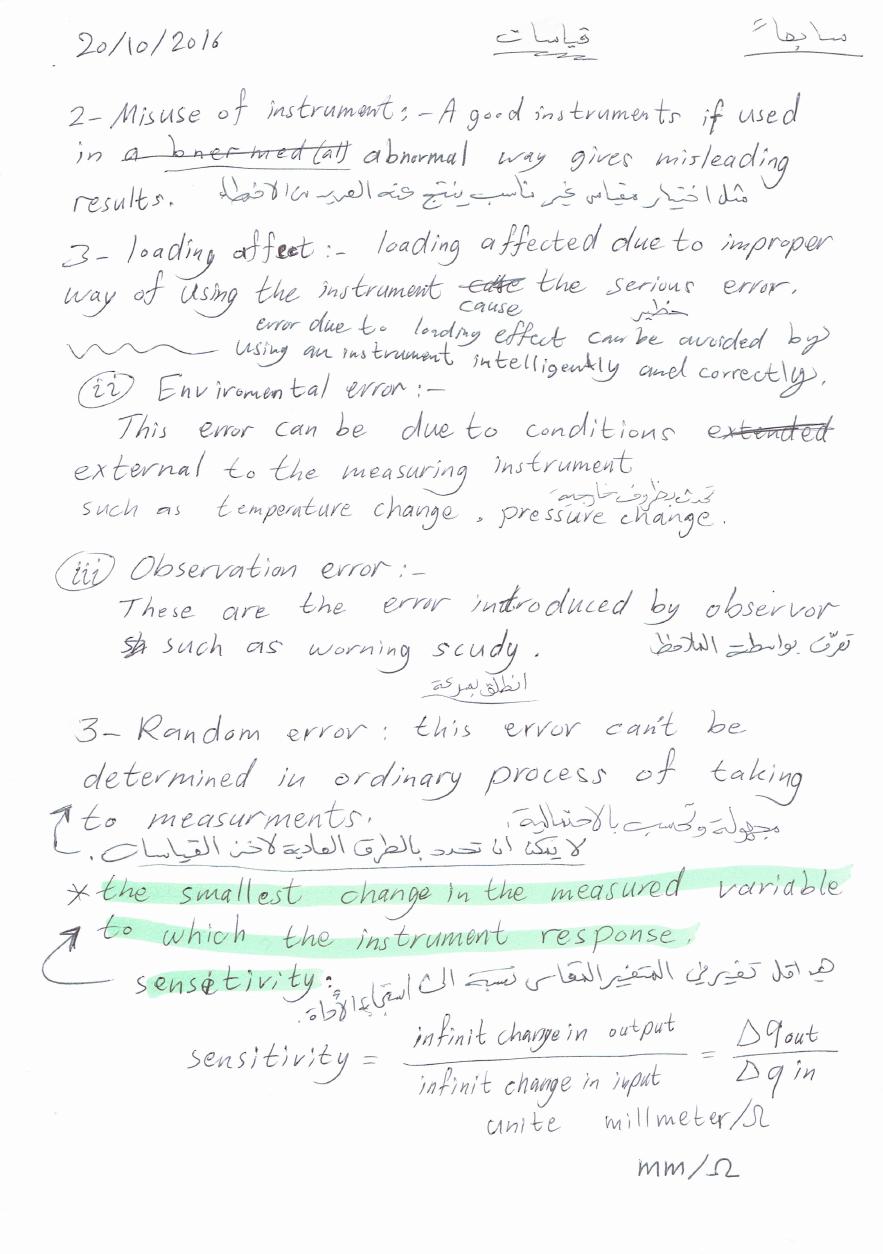 20/10/2016 قياسات
2- Misuse of instrument:- A good instruments if used
in a bner med (al) abnormal way gives misleading
results. مثل اختيار مقياس غير مناسب ينتج عنه العديد من الاخطاء
3- loading affect:- loading affected due to improper
way of using the instrument cause the serious error.
cause خطير
error due to loading effect can be avoided by
using an instrument intelligently and correctly.
(ii) Enviromental error:-
This error can be due to conditions extended
external to the measuring instrument
تحدث بظروف خارجية
such as temperature change , pressure change.
(iii) Observation error:-
These are the error introduced by observor
sh such as worning scudy. بواسطة الملاحظ
انطلق بسرعة
3- Random error : this error can't be
determined in ordinary process of taking
to measurments. مجهولة وتحسب بالاحتمالية.
لا يمكن ان تحدد بالطرق العادية لاخذ القياسات.
* the smallest change in the measured variable
to which the instrument response.
sensitivity: هو اقل تغير في المتغير المقاس نسبة الى استجابة الأداة.
sensitivity = infinit change in output / infinit change in input = Δqout / Δqin
unite millmeter/Ω
mm/Ω